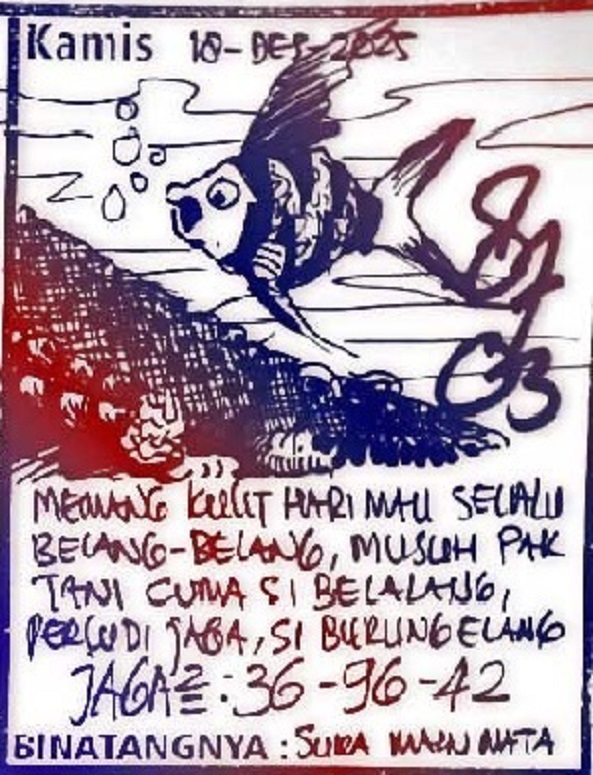 Kamis 18-DES-2025
87
03
MEMANG KULIT HARIMAU SELALU
BELANG-BELANG, MUSUH PAK
TANI CUMA SI BELALANG,
PERLU DI JAGA, SI BURUNG ELANG
JAGA2 = : 36 - 96 - 42
BINATANGNYA : SUKA MAIN MATA